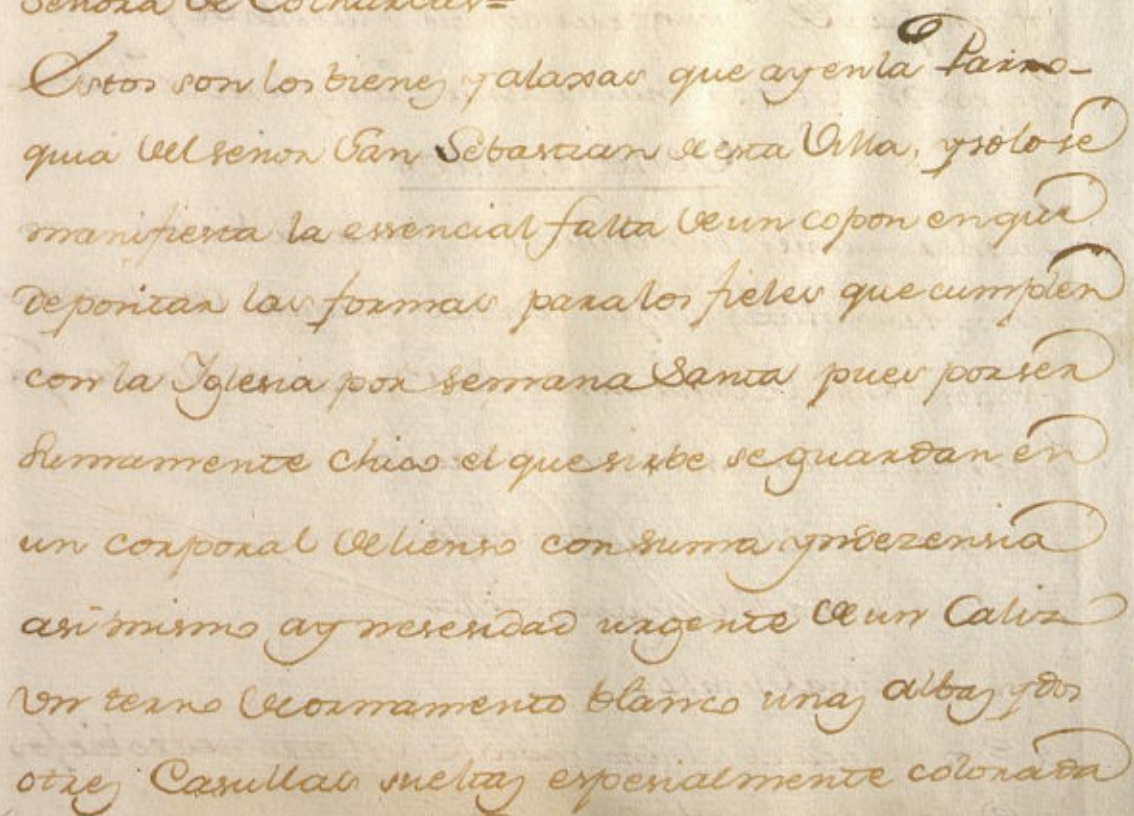 Señora de
Estos son los bienes y alaxas que ay en la Parro-
quia del señor San Sebastian de esta Villa, y solo se
manifiesta la essencial falta de un copon en que
depositar las formas para los fieles que cumplen
con la Iglesia por semana Santa pues por ser
sumamente chico el que sirbe se guardan en
un corporal de lienso con suma yndezensia
asi mismo ay nesesidad urgente de un Caliz
Un terno de ornamento blanco unas albas y dos
o tres Casullas sueltas espesialmente colorada